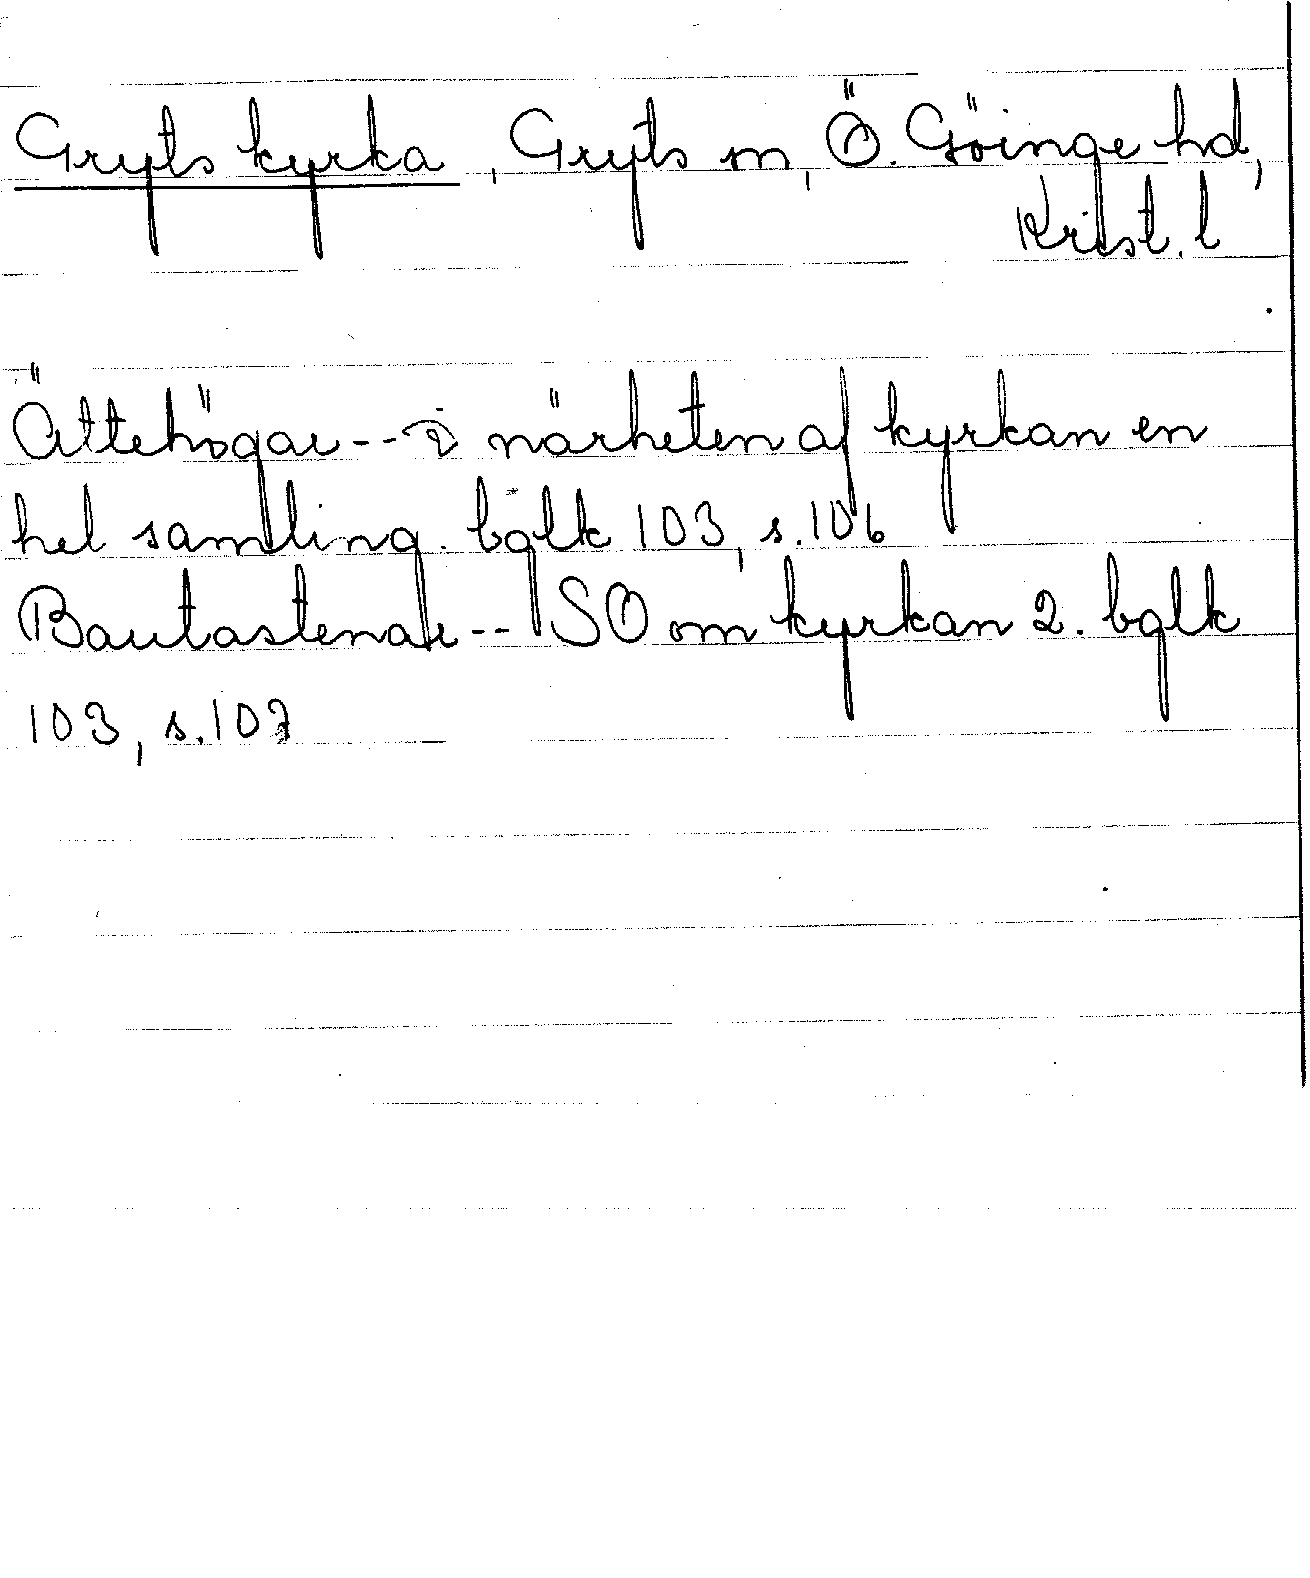 Gryts kyrka, Gryts sn, Ö. Göinge hd,
Krist. l
Ättehögar -- i närheten af kyrkan en
hel samling. bqlk 103, s. 106
Bautastenar -- SO om kyrkan 2. bqlk
103, s. 107